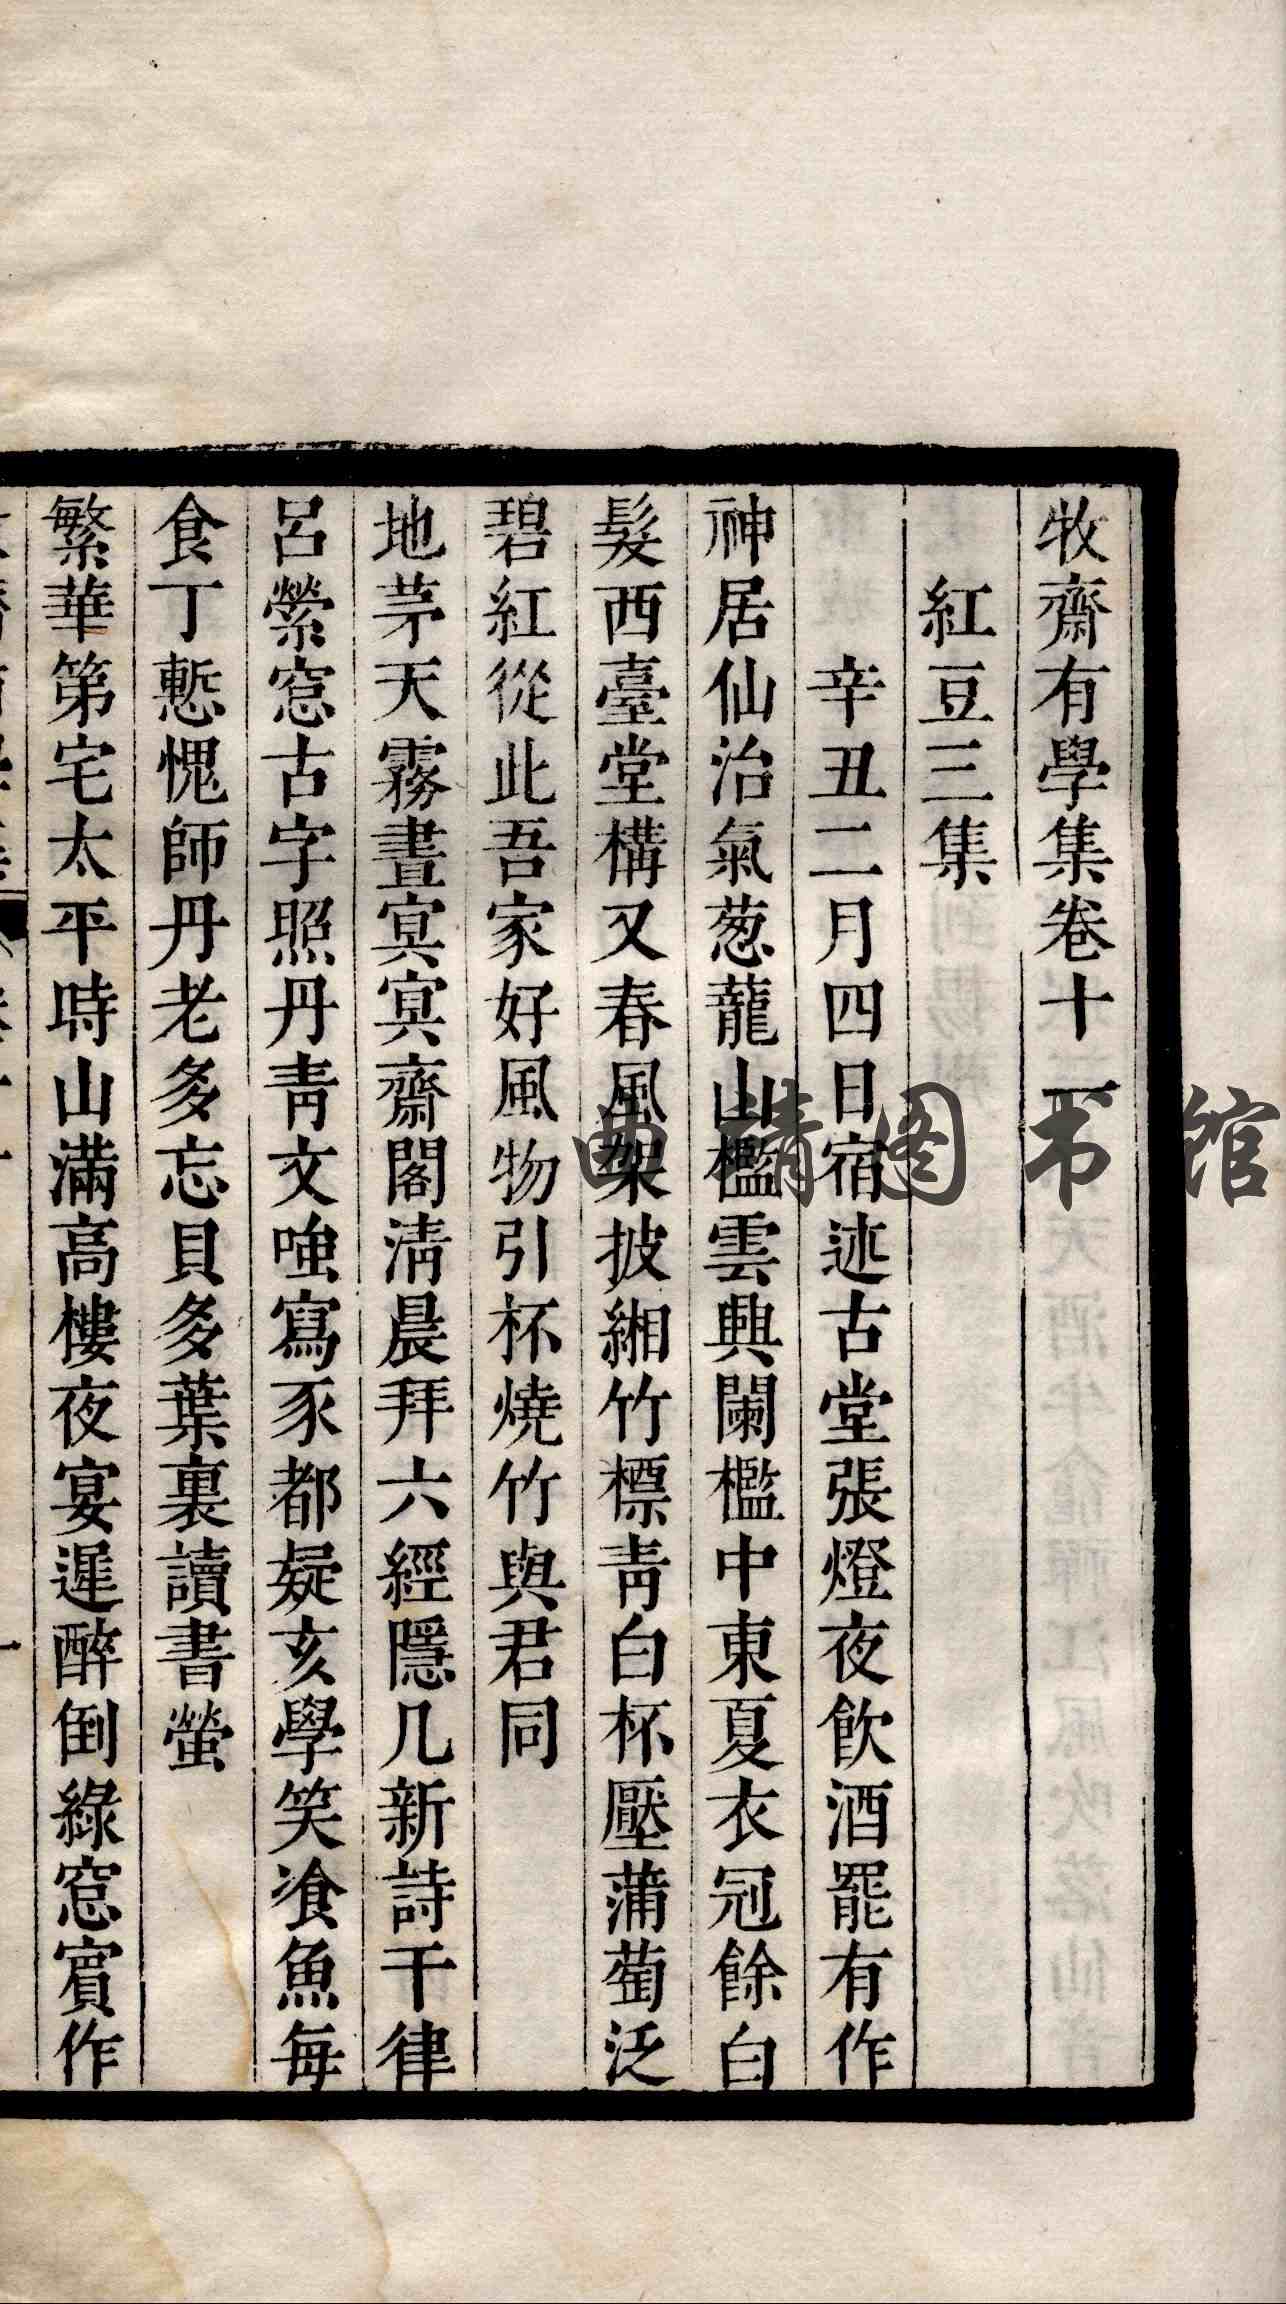 牧齋有學集卷十一
紅豆三集
辛丑二月四日宿述古堂張燈夜飲酒罷有作
神居仙治氣葱蘢山檻雲興闌檻中東夏衣冠餘白
髮西臺堂構又春風架披緗竹標青白杯壓蒲萄泛
碧紅從此吾家好風物引杯燒竹與君同
地茅天霧晝寘寘齋閣清晨拜六經隱几新詩千律
呂縈窓古字照丹青文嗤寫豕都疑亥學笑飡魚每
食丁慙愧師丹老多忘貝多葉裏讀書螢
繁華第宅太平時山滿高樓夜宴遲醉倒綠窓賓作
曲靖图书馆